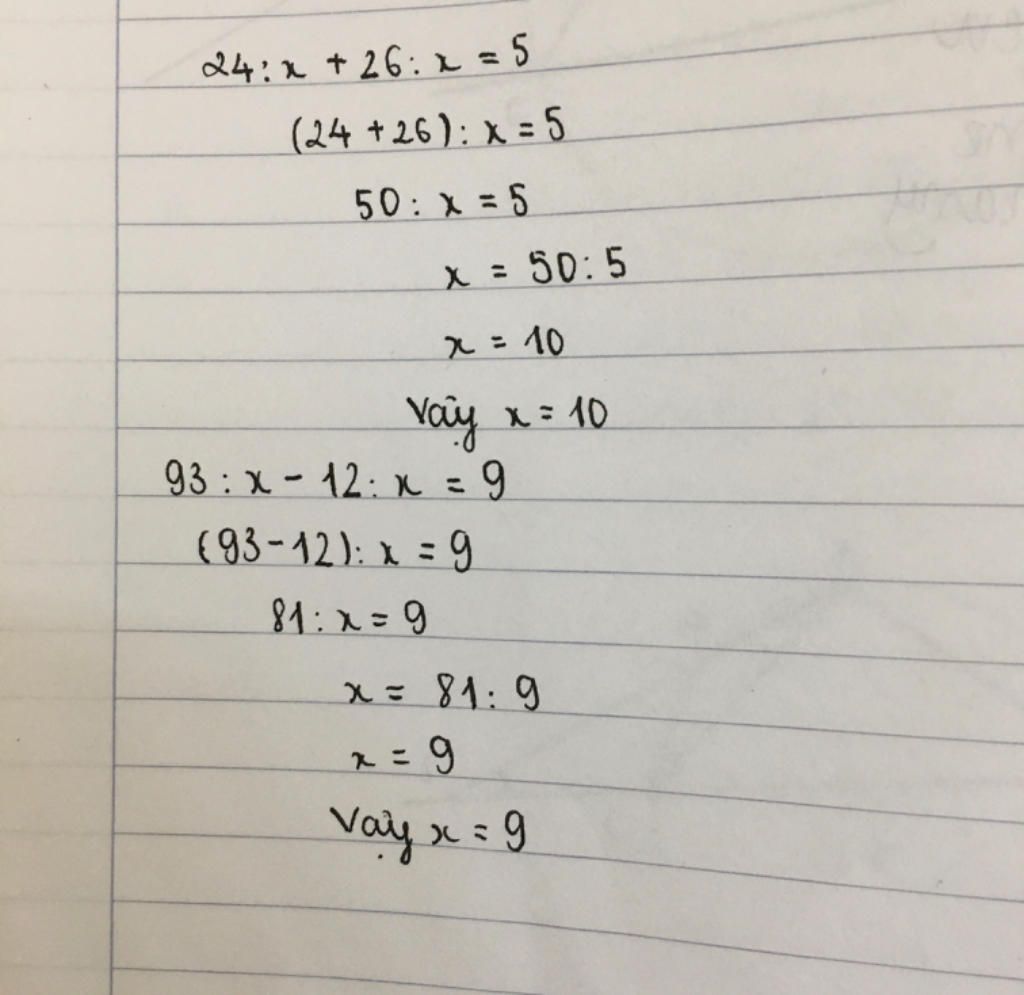 24 : x + 26 : x = 5
(24 + 26) : x = 5
50 : x = 5
x = 50 : 5
x = 10
Vậy x = 10
93 : x - 12 : x = 9
(93 - 12) : x = 9
81 : x = 9
x = 81 : 9
x = 9
Vậy x = 9